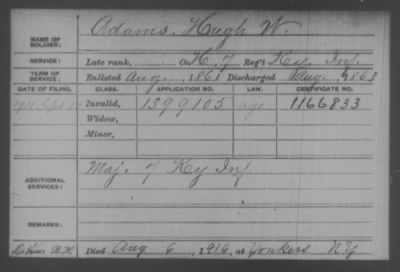 NAME OF SOLDIER: Adams, Hugh W.
SERVICE: Late rank, Co. K, 7 Reg't Ky. Inf.
TERM OF SERVICE: Enlisted Aug., 1861 Discharged Aug. 1863
DATE OF FILING. CLASS. APPLICATION NO. LAW. CERTIFICATE NO.
Invalid, 1399105 age 1166833
Widow,
Minor,
ADDITIONAL SERVICES: Maj. 7 Ky Inf
REMARKS:
Died Aug 6, 1916, at Yonkers NY